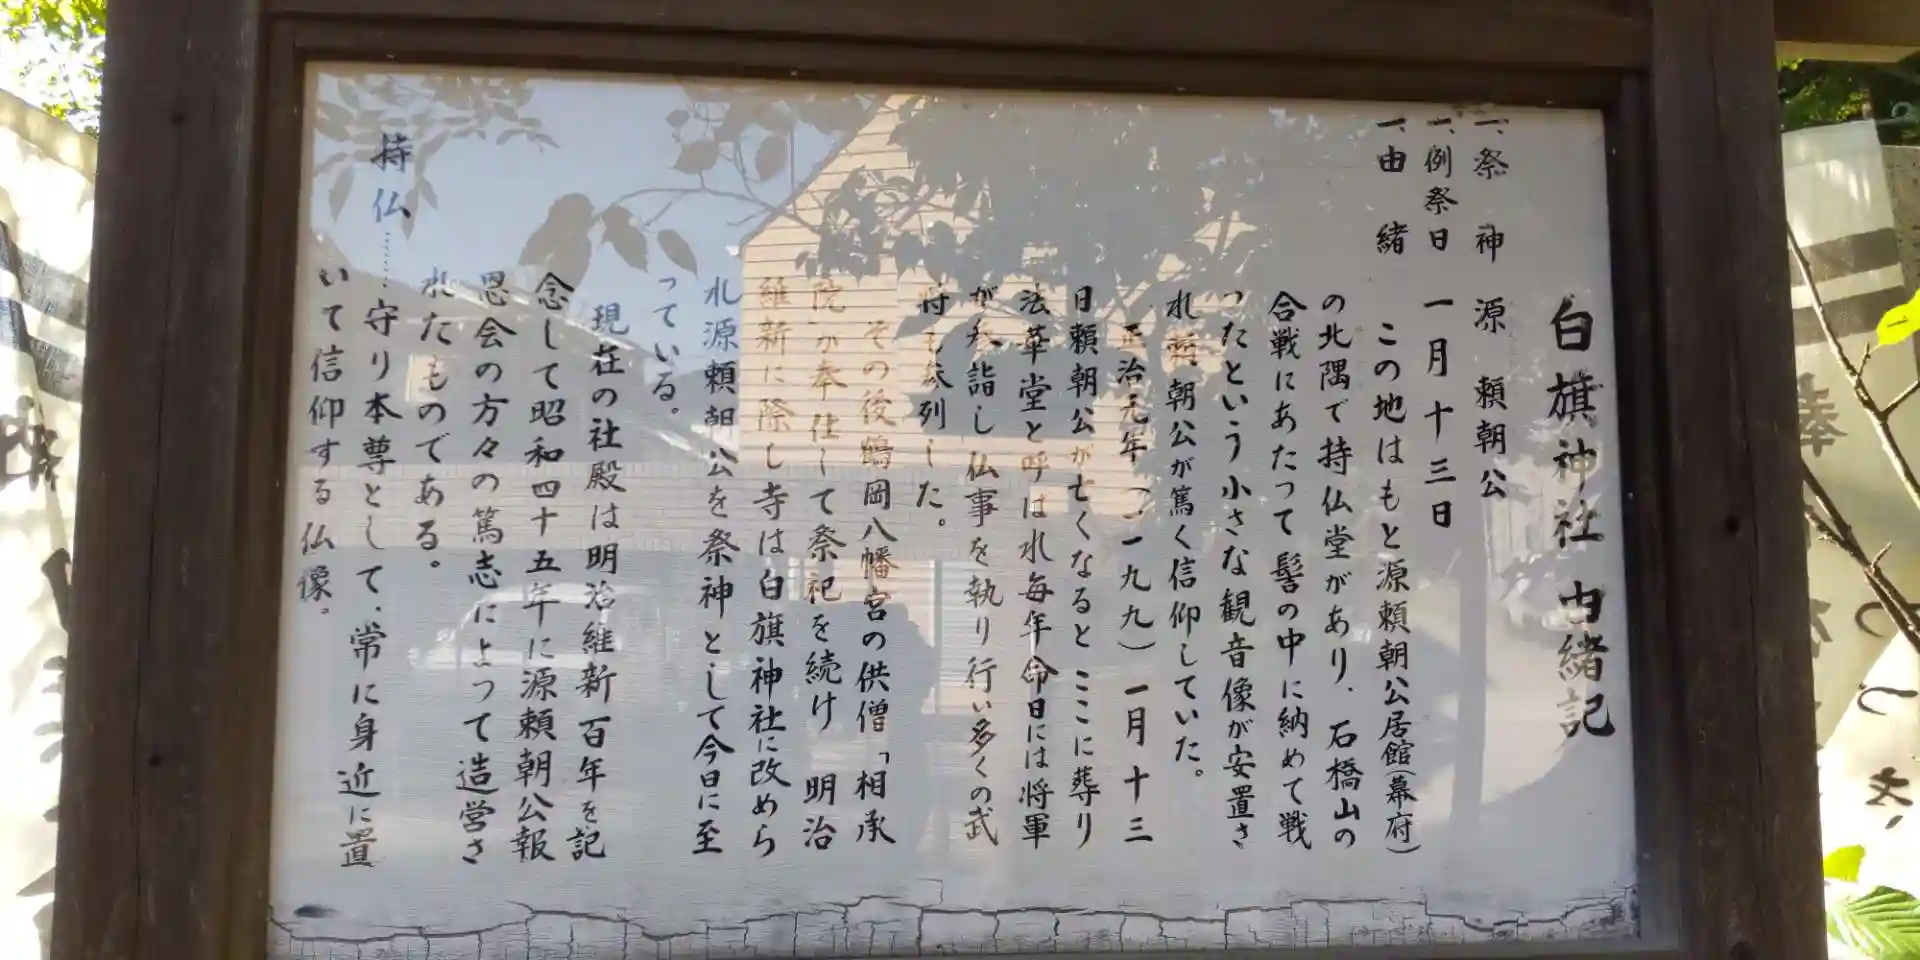 白旗神社 由緒記
一、祭神 源頼朝公
一、例祭日 一月十三日
一、由緒
この地はもと源頼朝公居館(幕府)
の北隅で持仏堂があり、石橋山の
合戦にあたって髻の中に納めて戦
ったという小さな観音像が安置さ
れ頼朝公が篤く信仰していた。
正治元年(一一九九)一月十三
日頼朝公が亡くなるとここに葬り
法華堂と呼ばれ毎年命日には将軍
が参詣し仏事を執り行い多くの武
将も参列した。
その後鶴岡八幡宮の供僧「相承
院」が奉仕して祭祀を続け 明治
維新に際し寺は白旗神社に改めら
れ源頼朝公を祭神として今日に至
っている。
現在の社殿は明治維新百年を記
念して昭和四十五年に源頼朝公報
恩会の方々の篤志によって造営さ
れたものである。
持仏……守り本尊として、常に身近に置
いて信仰する仏像。